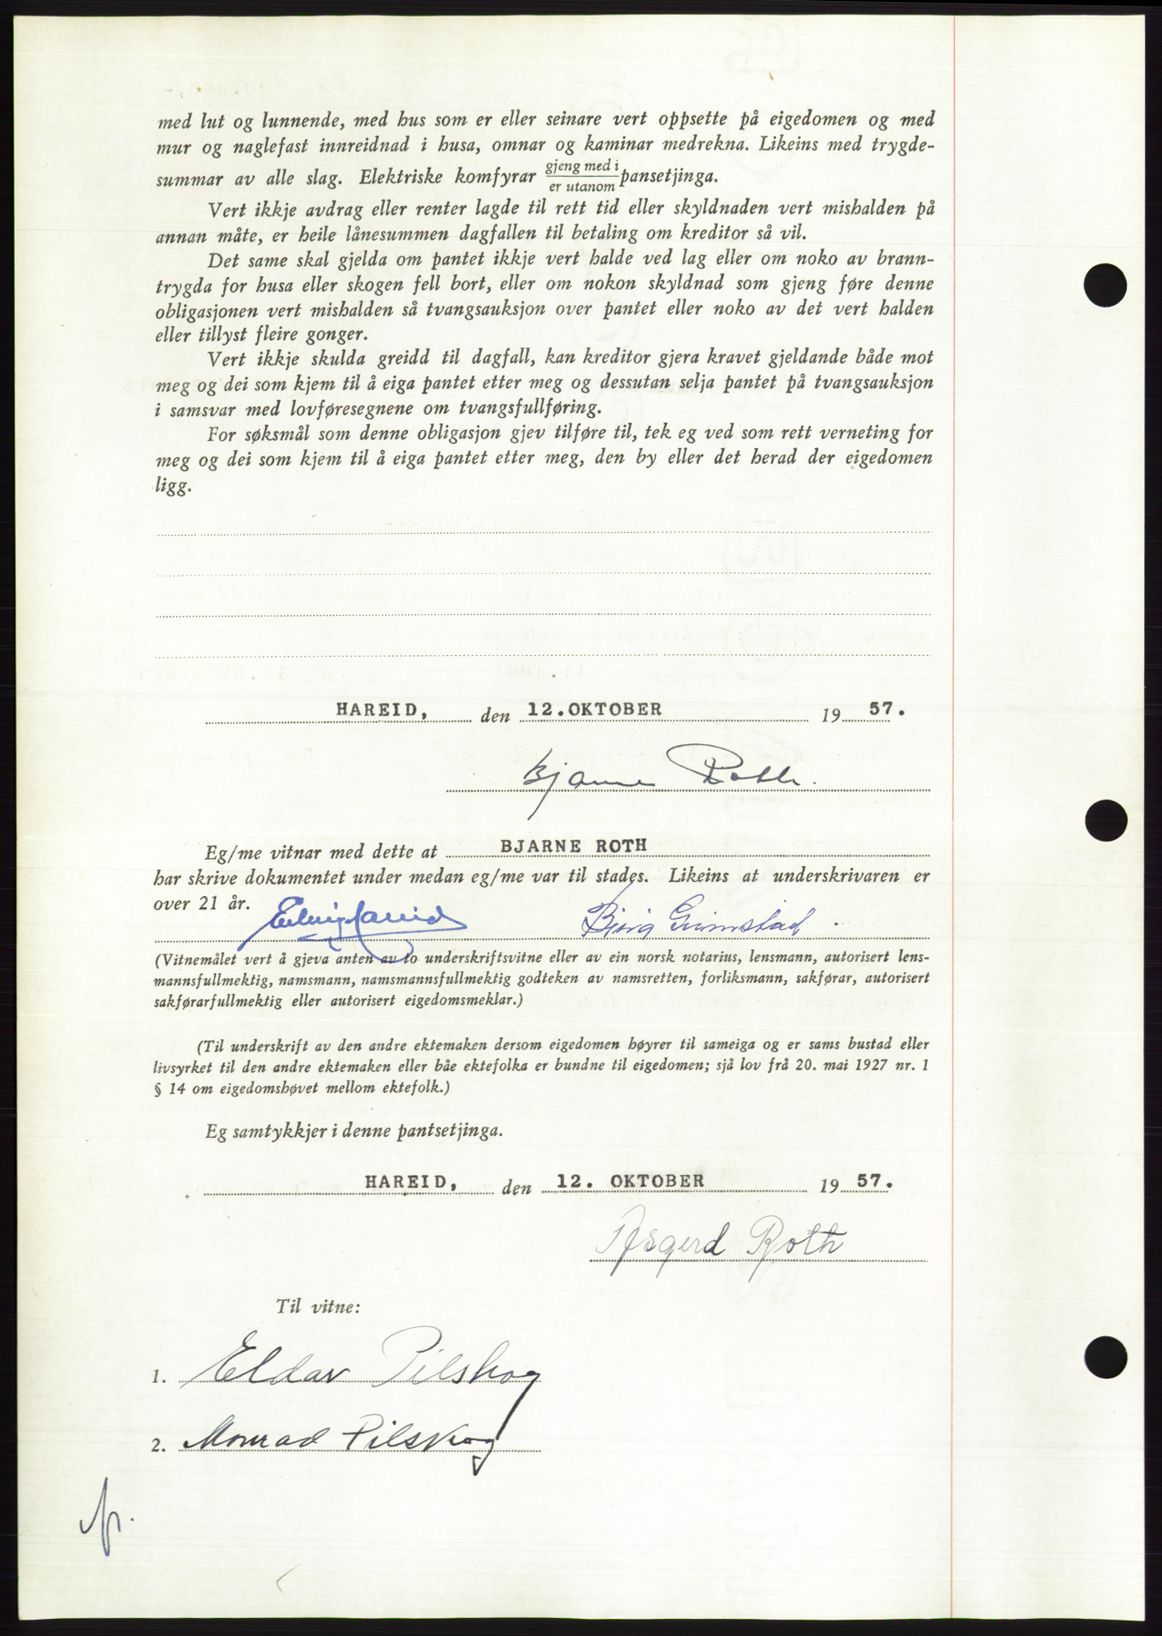 med lut og lunnende, med hus som er eller seinare vert oppsette på eigedomen og med
mur og naglefast innreidnad i husa, omnar og kaminar medrekna. Likeins med trygde-
summar av alle slag. Elektriske komfyrar gjeng med i / er utanom pansetjinga.
Vert ikkje avdrag eller renter lagde til rett tid eller skyldnaden vert mishalden på
annan måte, er heile lånesummen dagfallen til betaling om kreditor så vil.
Det same skal gjelda om pantet ikkje vert halde ved lag eller om noko av brann-
trygda for husa eller skogen fell bort, eller om nokon skyldnad som gjeng føre denne
obligasjonen vert mishalden så tvangsauksjon over pantet eller noko av det vert halden
eller tillyst fleire gonger.
Vert ikkje skulda greidd til dagfall, kan kreditor gjera kravet gjeldande både mot
meg og dei som kjem til å eiga pantet etter meg og dessutan selja pantet på tvangsauksjon
i samsvar med lovføresegnene om tvangsfullføring.
For søksmål som denne obligasjon gjev tilføre til, tek eg ved som rett verneting for
meg og dei som kjem til å eiga pantet etter meg, den by eller det herad der eigedomen
ligg.
HAREID, den 12.OKTOBER 19 57.
Bjarne Roth.
Eg/me vitnar med dette at BJARNE ROTH
har skrive dokumentet under medan eg/me var til stades. Likeins at underskrivaren er
over 21 år.
Grimstad
(Vitnemålet vert å gjeva anten av to underskriftsvitne eller av ein norsk notarius, lensmann, autorisert lens-
mannsfullmektig, namsmann, namsmannsfullmektig godteken av namsretten, forliksmann, sakførar, autorisert
sakførarfullmektig eller autorisert eigedomsmeklar.)
(Til underskrift av den andre ektemaken dersom eigedomen høyrer til sameiga og er sams bustad eller
livsyrket til den andre ektemaken eller båe ektefolka er bundne til eigedomen; sjå lov frå 20. mai 1927 nr. 1
§ 14 om eigedomshøvet mellom ektefolk.)
Eg samtykkjer i denne pantsetjinga.
HAREID, den 12. OKTOBER 19 57.
Asgerd Roth
Til vitne:
1. Eldar Pilskog
2. Monrad Pilskog